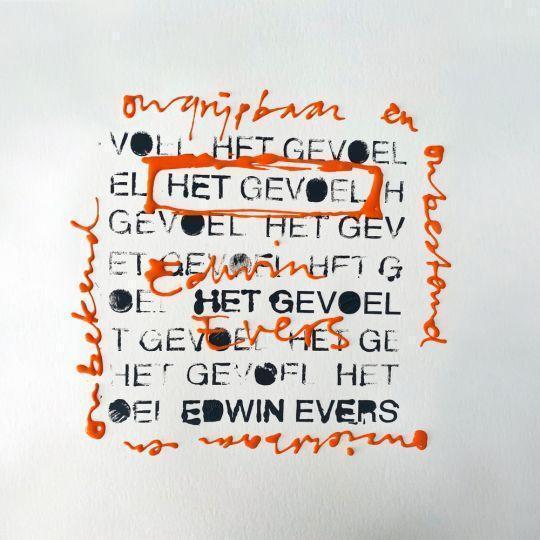 ongrijpbaar en
VOEL HET GEVOEL
EL HET GEVOEL H
GEVOEL HET GEV
ET GEVOEL HET G
Edwin
OEL HET GEVOEL
Evers
T GEVOEL HET GE
HET GEVOEL HET
OEL EDWIN EVERS
onbestemd
onbekend